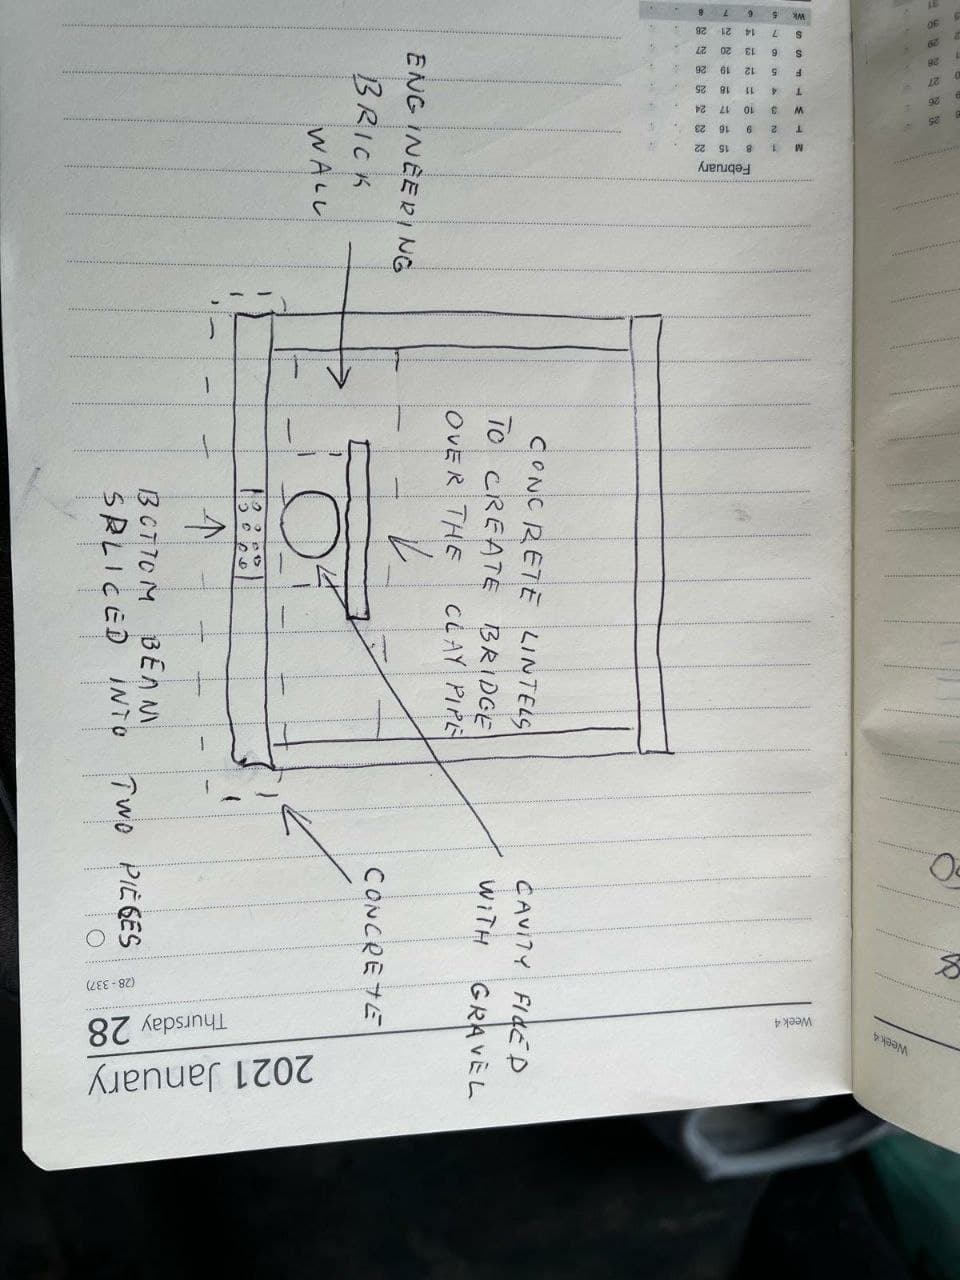 ENGINEERING
BRICK
WALL
CONCRETE LINTELS
TO CREATE BRIDGE
OVER THE CLAY PIPE
CAVITY FILLED
WITH GRAVEL
CONCRETE
BOTTOM BEAM
SPLICED INTO TWO PIECES
2021 January
Thursday 28
(28-337)
Week 4
Week 4
February
M 1 8 15 22
T 2 9 16 23
W 3 10 17 24
T 4 11 18 25
F 5 12 19 26
S 6 13 20 27
S 7 14 21 28
Wk 5 6 7 8
25
26
27
28
29
30
31